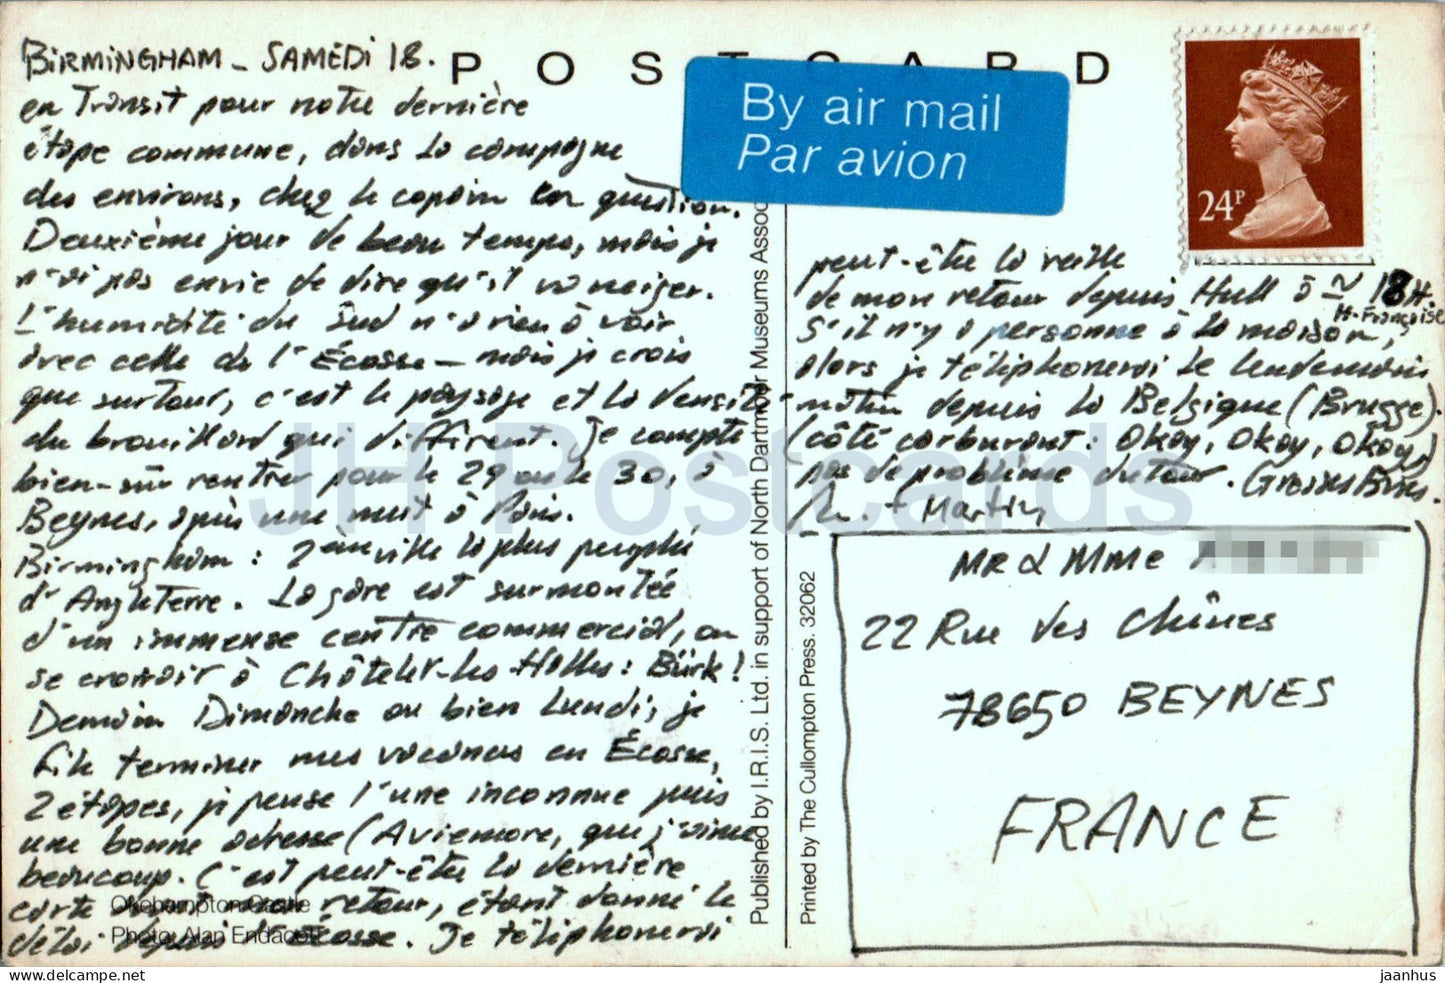 POSTCARD
By air mail
Par avion
24P
BIRMINGHAM – SAMEDI 18.
en Transit pour notre dernière
étape commune, dans la campagne
des environs, chez le copain en question.
Deuxième jour de beau temps, mais je
n'ai pas envie de dire qu'il va neiger.
L'humidité du Sud n'a rien à voir
avec celle de l'Écosse – mais je crois
que surtout, c'est le paysage et la densité
du brouillard qui diffèrent. Je compte
bien-sûr rentrer pour le 29 ou le 30, à
Beynes, après une nuit à Paris.
Birmingham : 2ème ville la plus peuplée
d'Angleterre. La gare est surmontée
d'un immense centre commercial, on
se croirait à Châtelet-les-Halles : Bürk !
Demain Dimanche ou bien Lundi, je
file terminer mes vacances en Écosse,
2 étapes, je pense l'une inconnue puis
une bonne adresse (Aviemore, que j'aime
beaucoup. C'est peut-être la dernière
carte avant mon retour, étant donné le
délai depuis l'Écosse. Je téléphonerai
Okehampton Castle
Photo: Alan Endacott
peut-être la veille
de mon retour depuis Hull à ~ 18H.
H. Française
S'il n'y a personne à la maison,
alors je téléphonerai le lendemain
matin depuis la Belgique (Brugge).
(côté carburant : Okay, Okay, Okay)
pas de problème du tout. Grosses Bises.
+ Martin
Published by I.R.I.S. Ltd. in support of North Dartmoor Museums Assoc
Printed by The Cullompton Press. 32062
MR & MMe
22 Rue des Chênes
78650 BEYNES
FRANCE
JH Postcards
www.delcampe.net
jaanhus